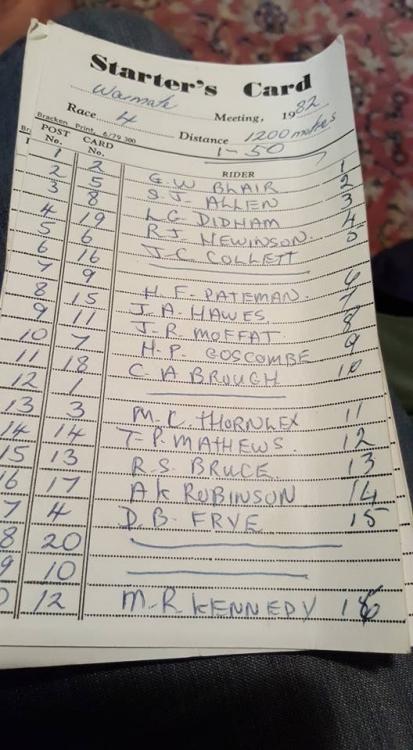 Starter's Card
Waimate Meeting, 1982
Race 4 Distance 1200 metres
Bracken Print, 6/79 300
1-50
POST No. CARD No. RIDER
1 2 G.W BLAIR 1
2 5 S.J. ALLEN 2
3 8 L.C. DIDHAM 3
4 19 R.J. 4
5 6 J.C. COLLETT 5
6 16
7 9 H.F. PATEMAN 6
8 15 J.A. HAWES 7
9 11 J.R. MOFFAT 8
10 7 H.P. GOSCOMBE 9
11 18 C A BROUGH 10
12 1
13 3 M.C. THORNLEY 11
14 14 T.P. MATHEWS. 12
15 13 R.S. BRUCE 13
16 17 A K ROBINSON 14
7 4 D.B. FRYE 15
8 20
9 10
0 12 M.R KENNEDY 16